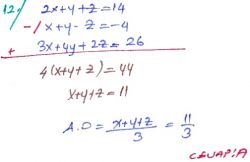 12.) 2x+y+z=14
-/x+y-z=-4
+ 3x+4y+2z=26
4(x+y+z)=44
x+y+z=11
A.O=x+y+z/3=11/3
CEVAP:A